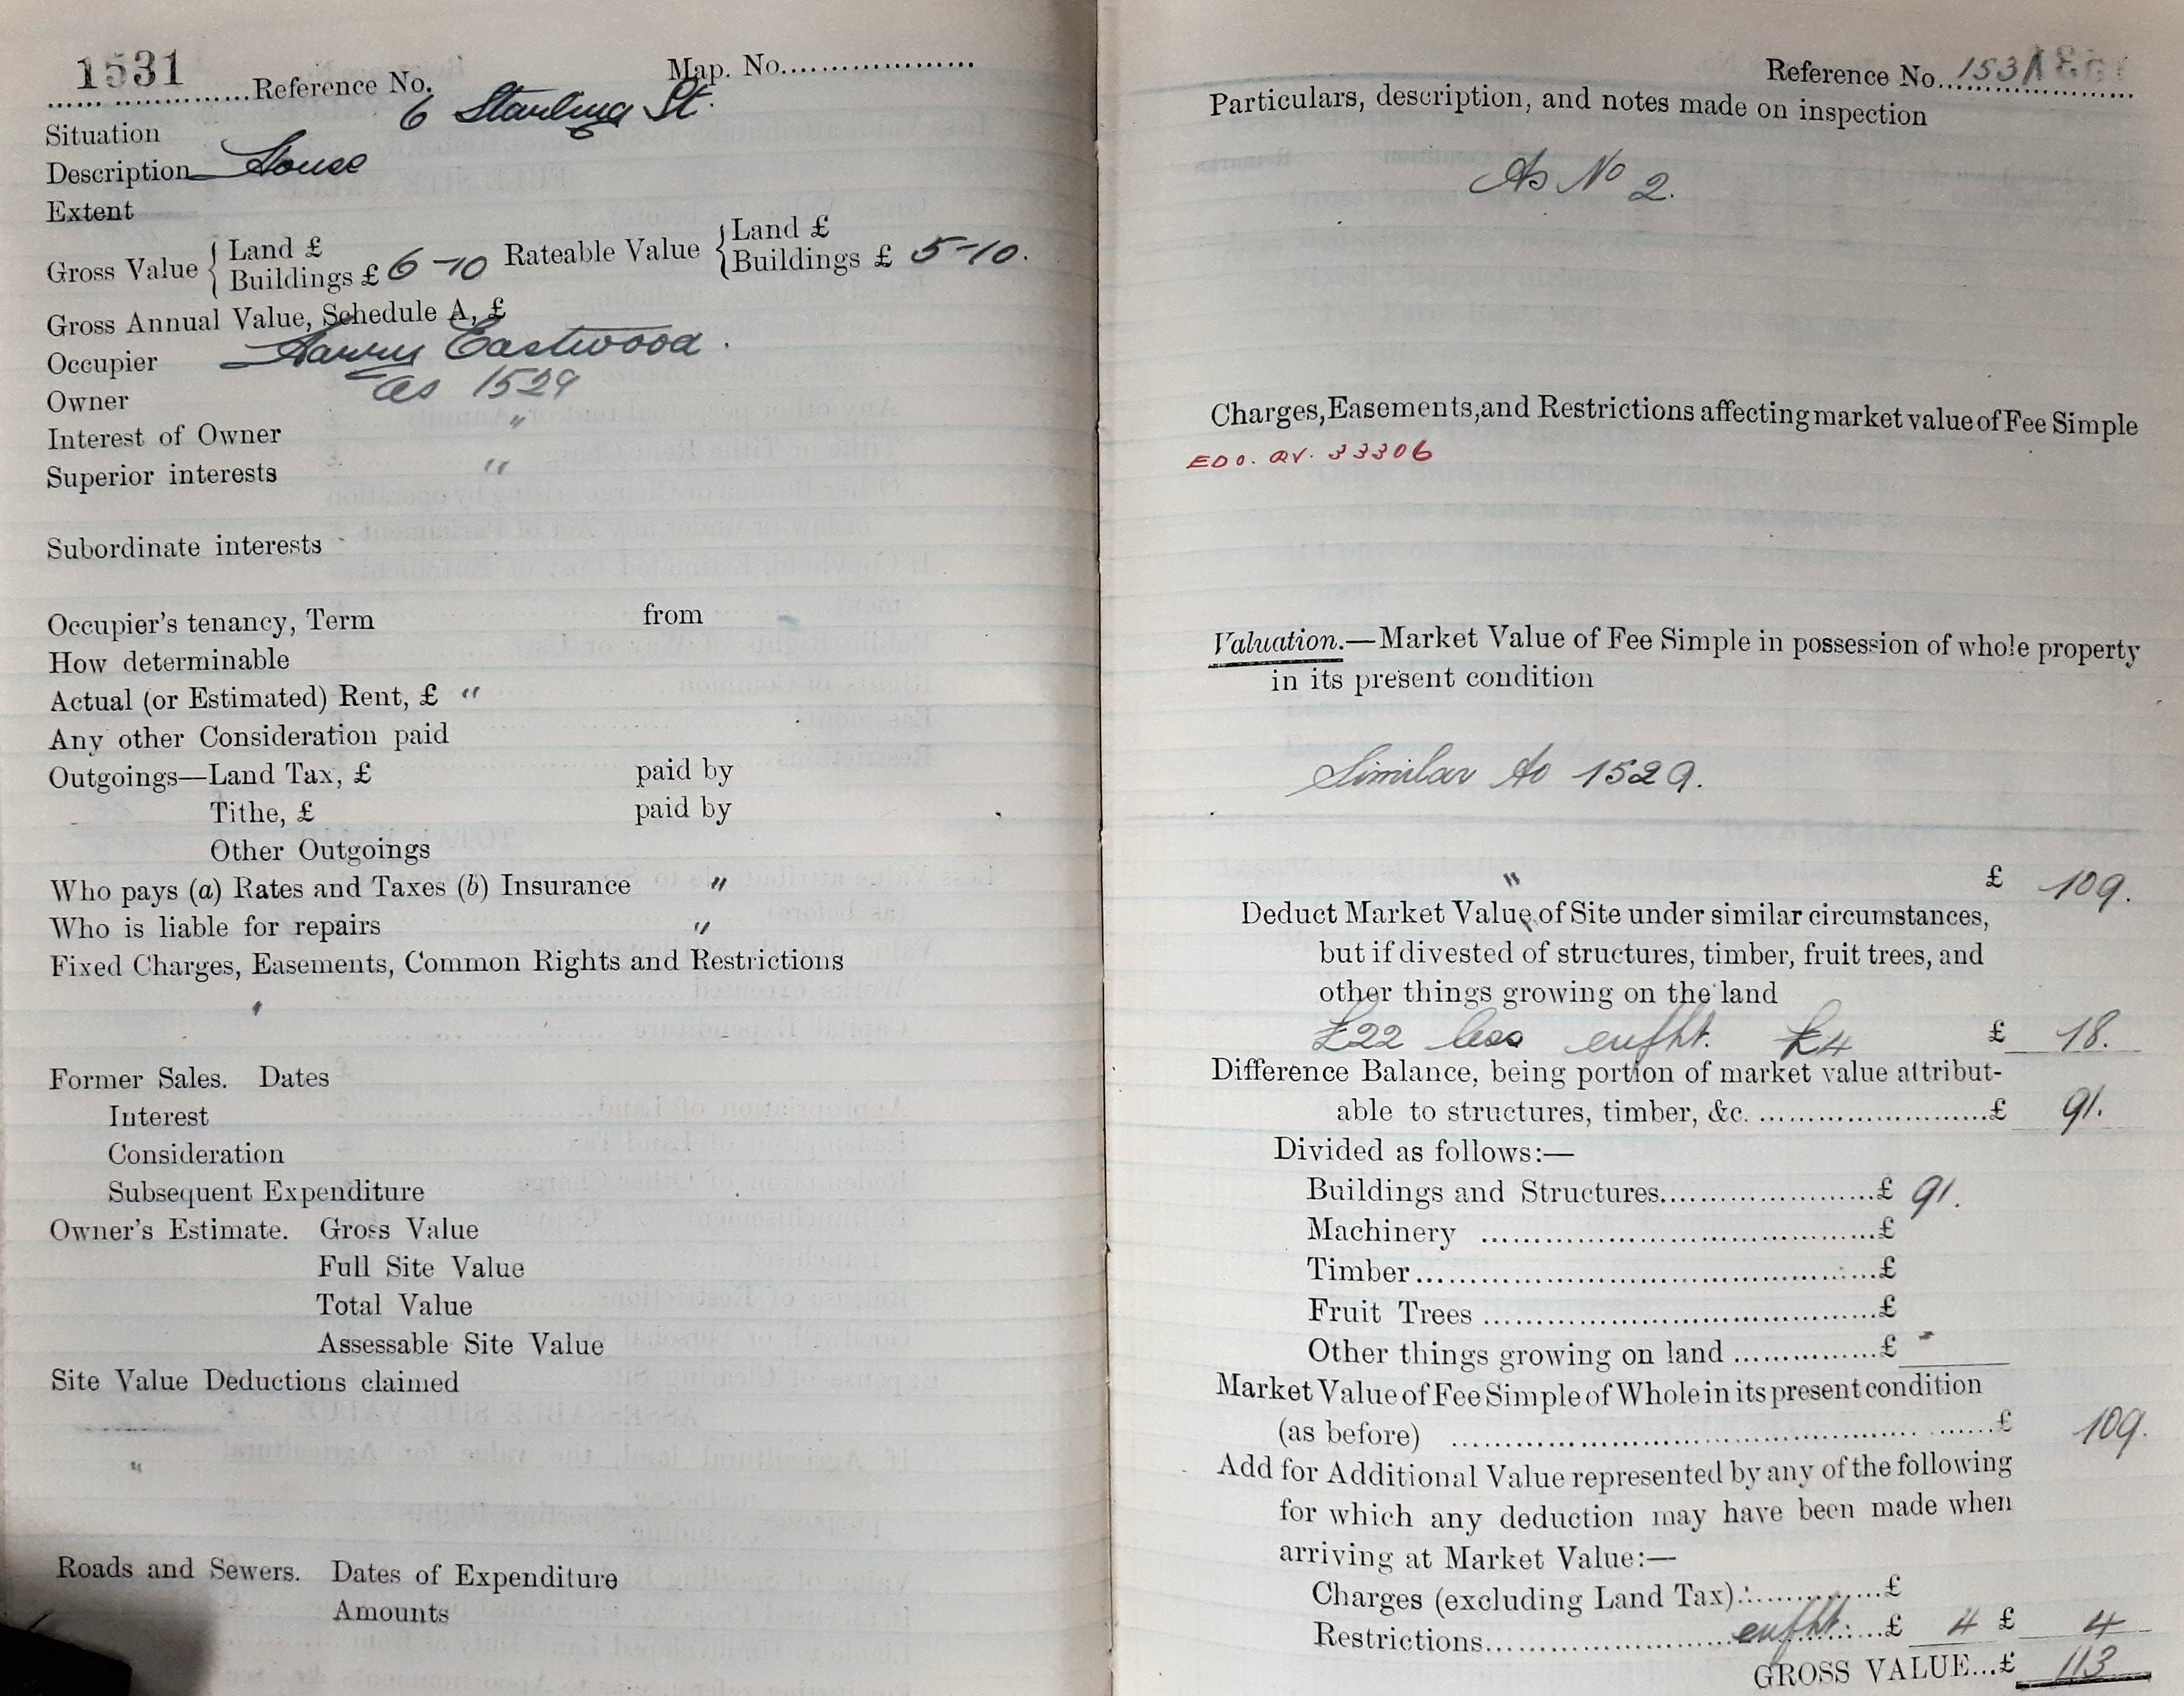 1531 Reference No. Map. No.
Situation 6 Starling St.
Description House
Extent
Gross Value { Land £
Buildings £ 6-10 Rateable Value { Land £
Buildings £ 5-10.
Gross Annual Value, Schedule A, £
Occupier Harry Eastwood.
Owner as 1529
Interest of Owner "
Superior interests "
Subordinate interests
Occupier's tenancy, Term from
How determinable
Actual (or Estimated) Rent, £ "
Any other Consideration paid
Outgoings—Land Tax, £ paid by
Tithe, £ paid by
Other Outgoings
Who pays (a) Rates and Taxes (b) Insurance "
Who is liable for repairs "
Fixed Charges, Easements, Common Rights and Restrictions
Former Sales. Dates
Interest
Consideration
Subsequent Expenditure
Owner's Estimate. Gross Value
Full Site Value
Total Value
Assessable Site Value
Site Value Deductions claimed
"
Roads and Sewers. Dates of Expenditure
Amounts
Reference No. 1531
Particulars, description, and notes made on inspection
As No 2.
Charges, Easements, and Restrictions affecting market value of Fee Simple
33306
Valuation.—Market Value of Fee Simple in possession of whole property
in its present condition
Similar to 1529.
" £ 109.
Deduct Market Value of Site under similar circumstances,
but if divested of structures, timber, fruit trees, and
other things growing on the land
£22 less £4 £ 18.
Difference Balance, being portion of market value attribut-
able to structures, timber, &c. £ 91.
Divided as follows:—
Buildings and Structures £ 91.
Machinery £
Timber £
Fruit Trees £
Other things growing on land £
Market Value of Fee Simple of Whole in its present condition
(as before) £ 109.
Add for Additional Value represented by any of the following
for which any deduction may have been made when
arriving at Market Value:—
Charges (excluding Land Tax) £
Restrictions £ 4 £ 4
GROSS VALUE...£ 113